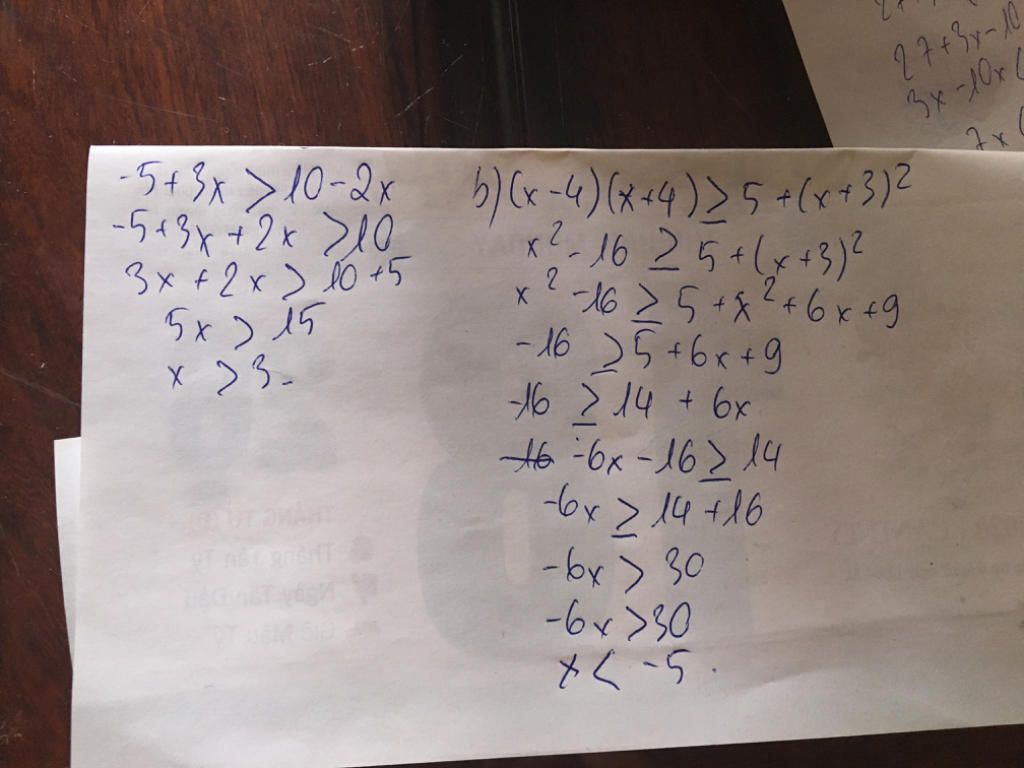 -5+3x > 10-2x
-5+3x+2x > 10
3x+2x > 10+5
5x > 15
x > 3.
b) (x-4)(x+4) ≥ 5+(x+3)²
x²-16 ≥ 5+(x+3)²
x²-16 ≥ 5+x²+6x+9
-16 ≥ 5+6x+9
-16 ≥ 14+6x
-16 -6x-16 ≥ 14
-6x ≥ 14+16
-6x > 30
-6x > 30
x < -5.
27+3x-10
3x-10x
7x
THÁNG TƯ
Tháng Tân Tỵ
Ngày Tân Dậu
Giờ Mậu Tý